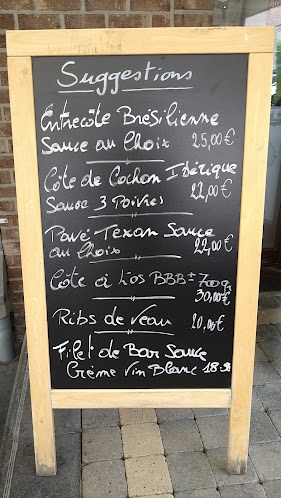 Suggestions
Entrecôte Brésilienne
Sauce au Choix 25,00€
Côte de Cochon Ibérique
Sauce 3 Poivres 22,00€
Pavé Texan Sauce
au Choix 22,00€
Côte à L'os BBB ± 700g
30,00€
Ribs de veau 20,00€
Filet de Bar Sauce
Crème Vin Blanc 18.